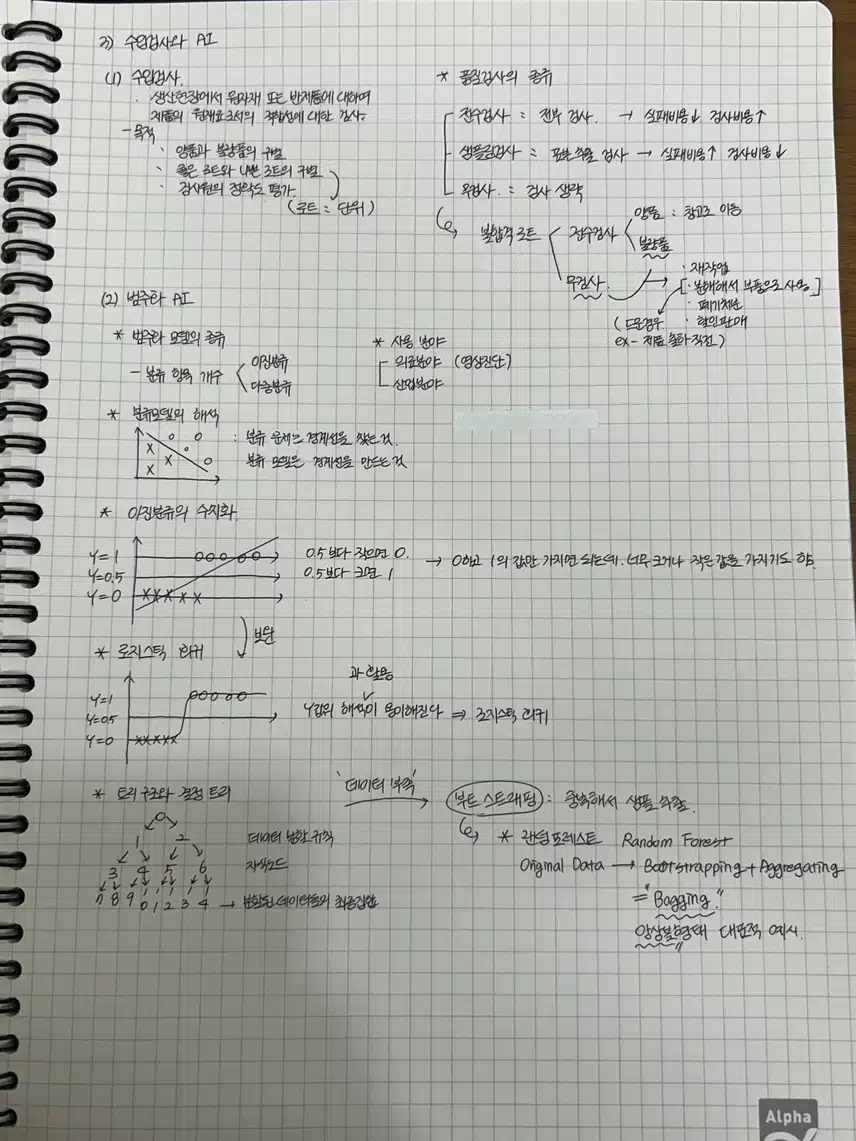 3) 수입검사와 AI
(1) 수입검사.
· 생산현장에서 원자재 또는 반제품에 대하여
제품의 원재료로서의 적합성에 대한 검사.
- 목적
· 양품과 불량품의 구별
· 좋은 로트와 나쁜 로트의 구별
· 검사원의 정확도 평가
(로트 = 단위)
* 품질검사의 종류
전수검사 = 전부 검사. → 실패비용↓ 검사비용↑
샘플링검사 = 표본 추출 검사 → 실패비용↑ 검사비용↓
무검사. = 검사 생략
불합격 로트
전수검사
양품 : 창고로 이동
불량품
무검사.
· 재작업
[· 분해해서 부품으로 사용]
· 폐기처분
· 할인판매
(드문경우
ex - 제품 출하 직전)
(2) 범주화 AI
* 범주화 모델의 종류
- 분류 항목 개수
이진분류
다중분류
* 사용 분야
의료분야 (영상진단)
산업분야
* 분류모델의 해석
: 분류 문제는 경계선을 찾는 것.
분류 모델은 경계선을 만드는 것
* 이진분류의 수치화.
Y=1
Y=0.5
Y=0
0.5보다 작으면 0.
0.5보다 크면 1
→ 0하고 1의 값만 가지면 되는데, 너무 크거나 작은 값을 가지기도 함.
보완
* 로지스틱 회귀
Y=1
Y=0.5
Y=0
과 활용
Y값의 해석이 용이해진다 ⇒ 로지스틱 회귀
* 트리 구조와 결정 트리
0
1 2
3 4 5 6
7 8 9 10 11 12 13 14
데이터 분할 규칙
자식노드
→ 분할된 데이터들의 최종집합
'데이터 부족'
→ 부트스트래핑 : 중복해서 샘플 추출.
* 랜덤 포레스트 Random Forest
Original Data → Bootstrapping + Aggregating
= "Bagging."
앙상블형태 대표적 예시.
Alpha